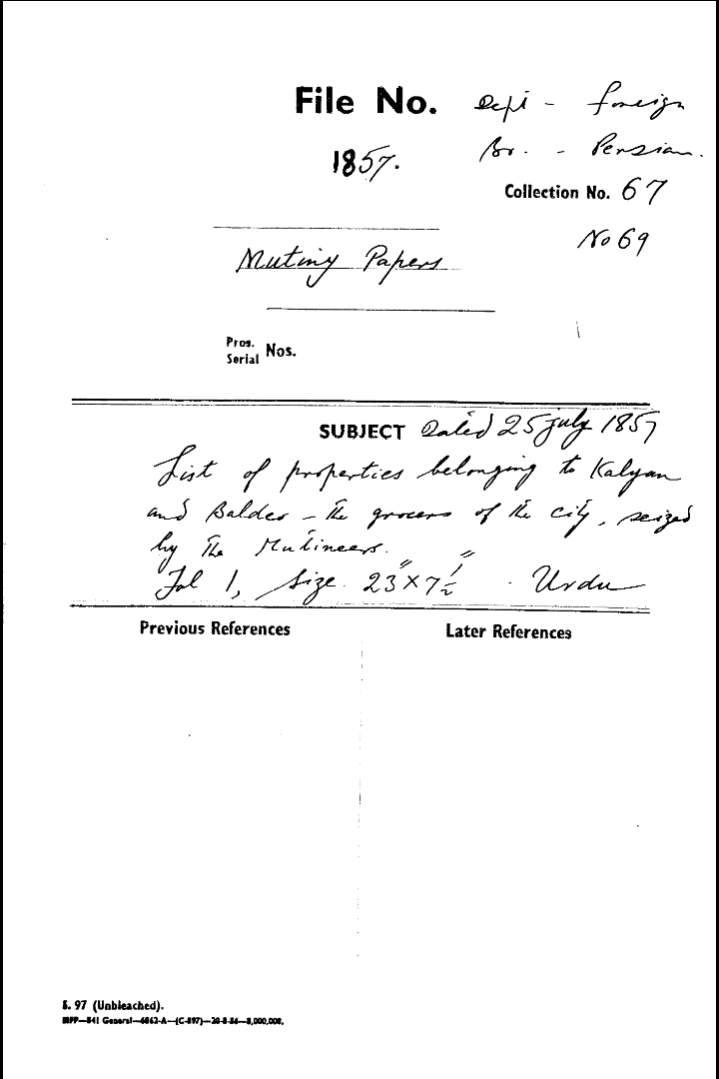 File No. Dept - Foreign
1857. Br. - Persian.
Collection No. 67
No 69
Mutiny Papers
Pros.
Serial Nos.
SUBJECT Dated 25 July 1857
List of properties belonging to Kalyan
and Baldeo - The grocers of the city, seized
by The Mutineers.
Fol 1, Size 23" x 7 1/2" . Urdu
Previous References
Later References
S. 97 (Unbleached).
MFP—841 General—6862-A—(C-897)—20-8-56—8,000,000.